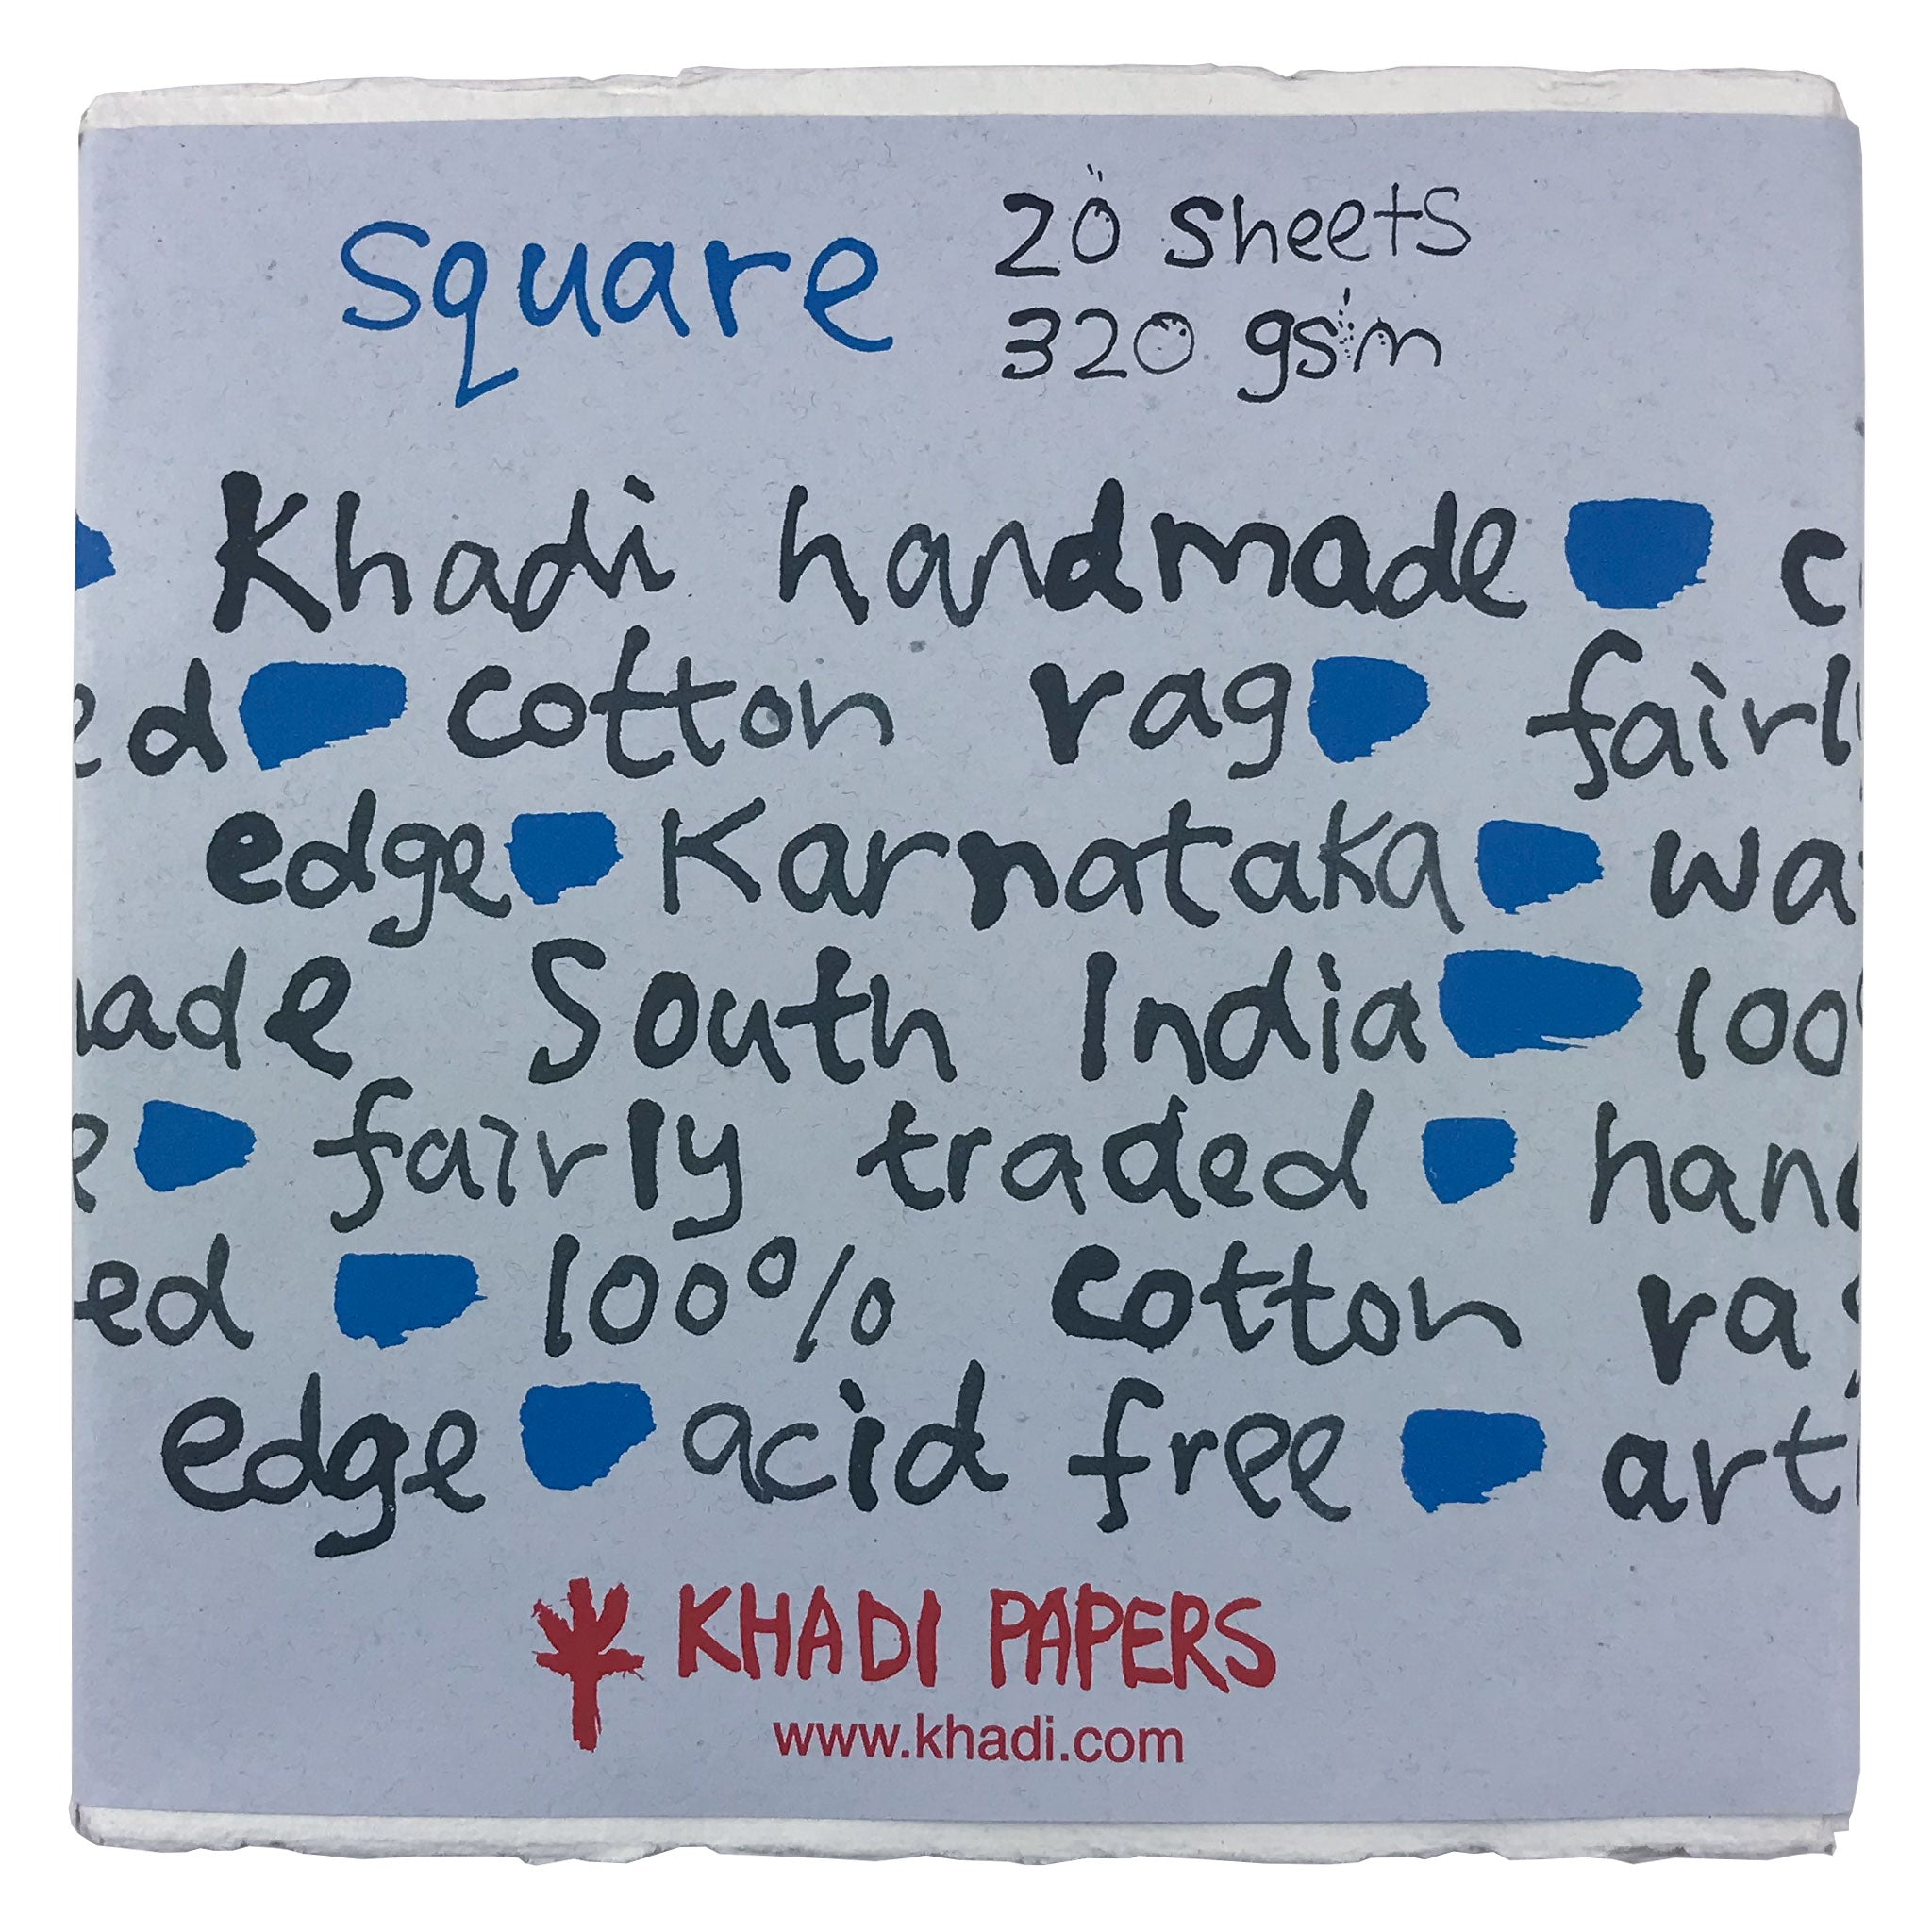 square 20 sheets
320 gsm
Khadi handmade c
ed cotton rag fairly
edge Karnataka wa
ade South India 100
e fairly traded hand
ed 100% cotton rag
edge acid free arti
KHADI PAPERS
www.khadi.com